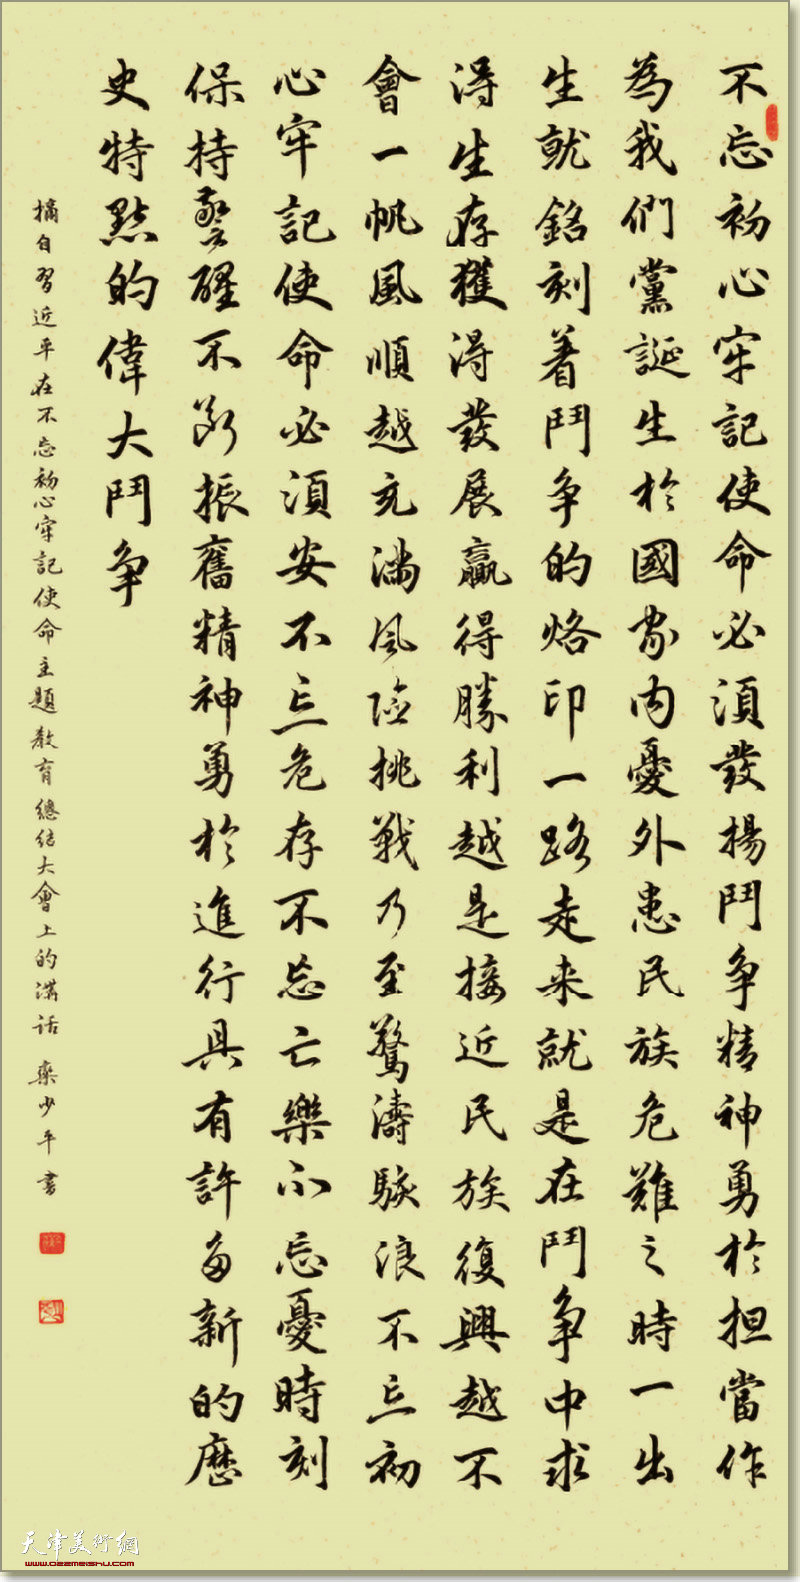 不忘初心牢記使命必須發揚鬥争精神勇於担當作
為我們黨誕生於國家内憂外患民族危難之時一出
生就銘刻着鬥争的烙印一路走来就是在鬥争中求
得生存獲得發展贏得勝利越是接近民族復興越不
會一帆風順越充滿风险挑戰乃至驚濤駭浪不忘初
心牢記使命必須安不忘危存不忘亡樂不忘憂時刻
保持警醒不断振奮精神勇於進行具有許多新的歷
史特點的偉大鬥争
摘自習近平在不忘初心牢記使命主題教育總结大會上的講话 欒少平書
天津美術網
www.022meishu.com